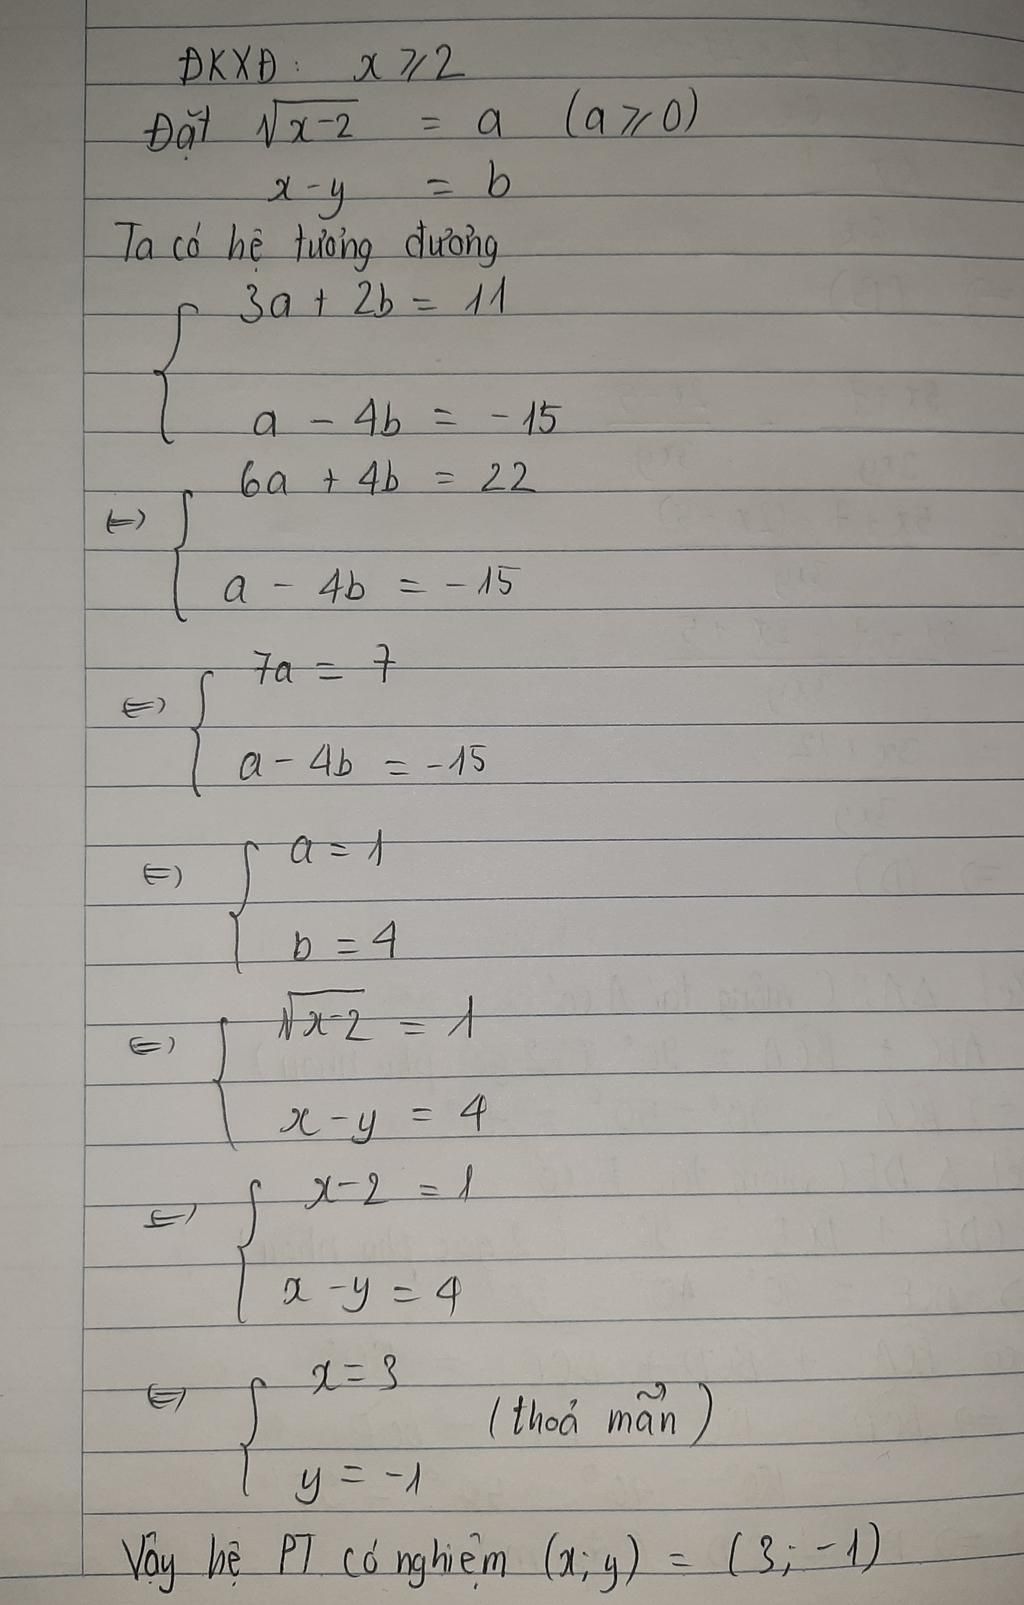 ĐKXĐ: x ⩾ 2
Đặt √x-2 = a (a ⩾ 0)
x - y = b
Ta có hệ tương đương
3a + 2b = 11
a - 4b = -15
6a + 4b = 22
⇔
a - 4b = -15
7a = 7
⇔
a - 4b = -15
a = 1
⇔
b = 4
√x-2 = 1
⇔
x - y = 4
x - 2 = 1
⇔
x - y = 4
x = 3
⇔ (thoả mãn)
y = -1
Vậy hệ PT có nghiệm (x; y) = (3; -1)